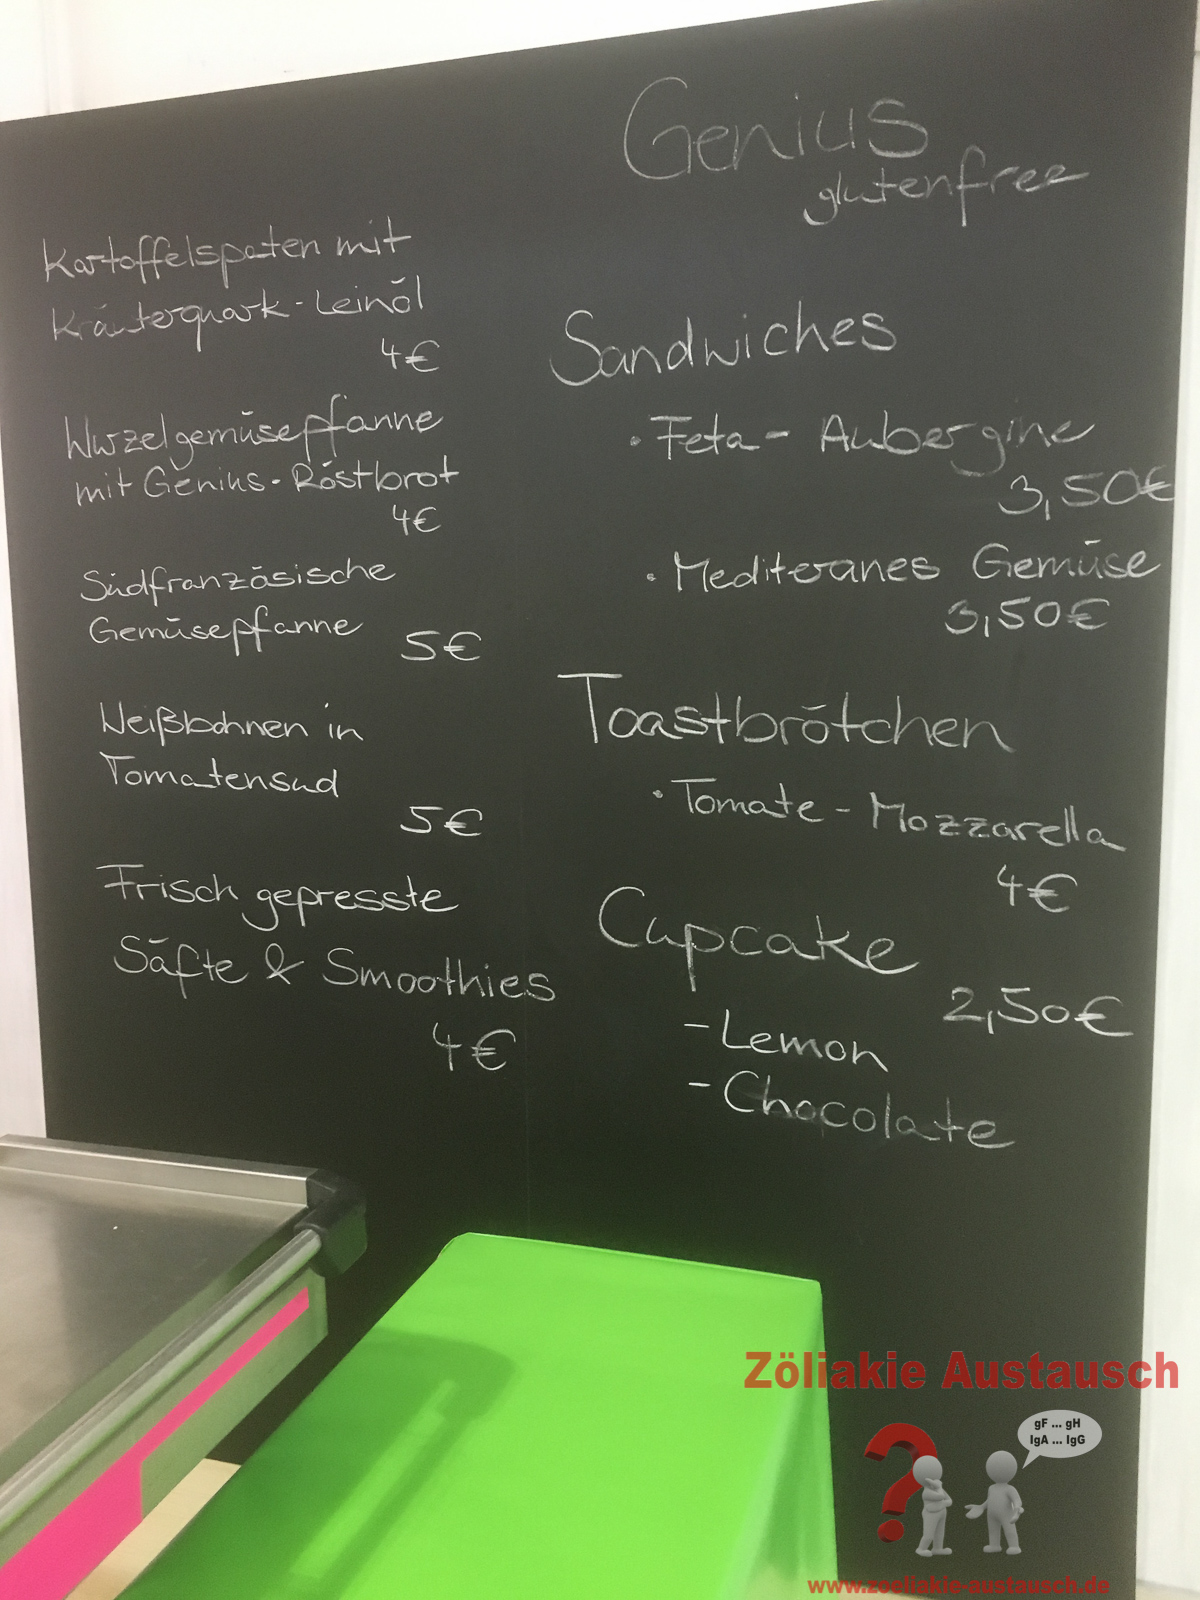 Genius
glutenfree
Kartoffelspaten mit
Kräuterquark-Leinöl
4€
Wurzelgemüsepfanne
mit Genius-Röstbrot
4€
Südfranzösische
Gemüsepfanne
5€
Weißbohnen in
Tomatensud
5€
Frisch gepresste
Säfte & Smoothies
4€
Sandwiches
• Feta - Aubergine
3,50€
• Mediteranes Gemüse
3,50€
Toastbrötchen
• Tomate - Mozzarella
4€
Cupcake
2,50€
- Lemon
- Chocolate
Zöliakie Austausch
gF ... gH
IgA ... IgG
www.zoeliakie-austausch.de